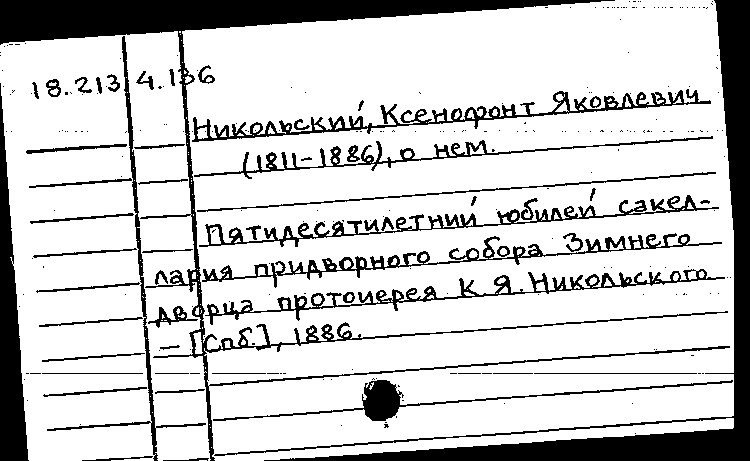 18.213.4.136
Никольский, Ксенофонт Яковлевич
(1811-1886), о нем.
Пятидесятилетний юбилей сакел-
лария придворного собора Зимнего
дворца протоиерея К Я. Никольского
— [Спб.], 1886.